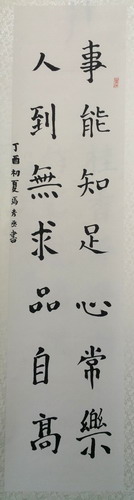 事能知足心常樂
人到無求品自高
丁酉初夏